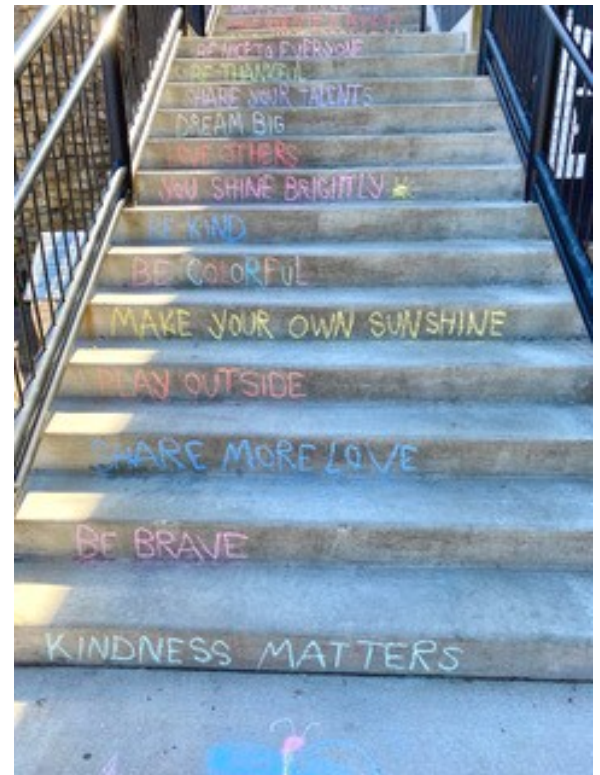 BE NICE TO EVERYONE
BE THANKFUL
SHARE YOUR TALENTS
DREAM BIG
OTHERS
YOU SHINE BRIGHTLY
BE KIND
BE COLORFUL
MAKE YOUR OWN SUNSHINE
PLAY OUTSIDE
SHARE MORE LOVE
BE BRAVE
KINDNESS MATTERS